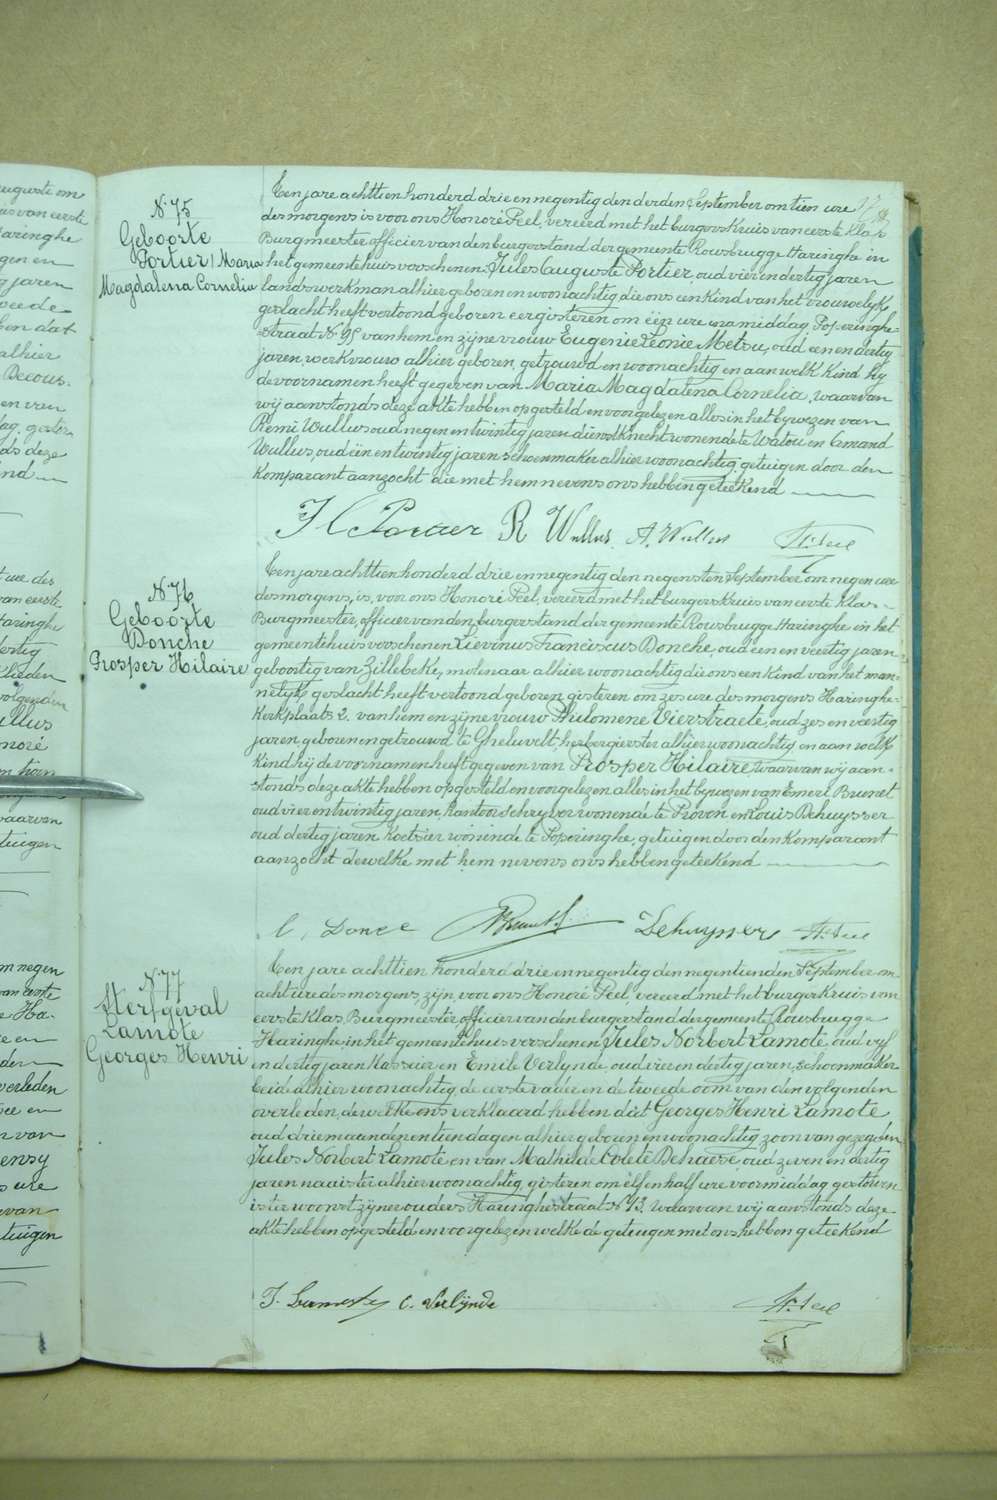 N. 75
Geboorte
Portier / Maria
Magdalena Cornelia
Een jare achttien honderd drie en negentig den derden September om tien ure
des morgens is voor ons Honoré Peel, vereerd met het burgerskruis van eerste klas
Burgmeester officier van den burgerstand der gemeente Rousbrugge Haringhe in
het gemeentehuis vorschenen: Jules Auguste Portier, oud vier en dertig jaren
landswerkman alhier geboren en woonachtig die ons een Kind van het vrouwelyk
geslacht heeft vertoond geboren eergisteren om één ure namiddag, Poperinghe-
straat N. 95 van hem en zijne vrouw Eugenie Léonie Metsu, oud een en dertig
jaren, werkvrouw alhier geboren, getrouwd en woonachtig en aan welk Kind hij
de voornamen heeft gegeven van Maria Magdalena Cornelia, waarvan
wij aanstonds deze akte hebben opgesteld en voorgelezen alles in het bywezen van
Remi Wullus oud negen en twintig jaren dienstknecht wonende te Watou en Amand
Wullus, oud één en twintig jaren schoenmaker alhier woonachtig, getuigen door den
Komparant aanzocht die met hem nevens ons hebben geteekend
R Wullus A. Wullus H. Peel
N. 76
Geboorte
Donche
Prosper Hilaire
Een jare achttien honderd drie en negentig den negensten September om negen ure
des morgens, is, voor ons Honoré Peel, vereerd met het burgerskruis van eerste Klas-
Burgmeester, officier van den burgerstand der gemeente Rousbrugge Haringhe in het
gemeentehuis vorschenen Lievinus Franciscus Donche, oud één en veertig jaren
geboortig van Zillebeke, molenaar alhier woonachtig die ons een Kind van het man-
nelyk geslacht heeft vertoond geboren gisteren om zes ure des morgens Haringhe-
Kerkplaats 2. van hem en zijne vrouw Philomene Vierstraete, oud zes en veertig
jaren, geboren en getrouwd te Gheluvelt, herbergierster alhier woonachtig en aan welk
Kind hij de voornamen heeft gegeven van Prosper Hilaire waarvan wij aan-
stonds deze akte hebben opgesteld en voorgelezen alles in het bywezen van Emeri Brunet
oud vier en twintig jaren, Kantoorschryver wonende te Proven en Louis Dehuysser
oud dertig jaren Koetsier woninde te Poperinghe, getuigen door den Komparant
aanzocht dewelke met hem nevens ons hebben geteekend
L, Donce Dehuysser H. Peel
N. 77
Sterfgeval
Lamote
Georges Henri
Een jare achttien honderd drie en negentig den negentienden September om
acht ure des morgens, zijn, voor ons Honoré Peel, vereerd met het burgerkruis van
eerste Klas, Burgmeester officier van den burgerstand der gemeente Rousbrugge
Haringhe, in het gemeentehuis verschenen Jules Norbert Lamote, oud vyf
en dertig jaren Kassier en Emile Verlynde, oud vier en dertig jaren, schoenmaker
beid alhier woonachtig de eerste vader en de tweede oom van den volgenden
overleden, dewelke ons verklaard hebben dat Georges Henri Lamote
oud drie maenden en tien dagen alhier geboren en woonachtig zoon van gezegden
Jules Norbert Lamote en van Mathilde Colete Dehaeve oud zeven en dertig
jaren naaister alhier woonachtig, gisteren om elf en half ure voormiddag gestorven
is ter woonst zyner ouders Haringhestraat N. 13. Waarvan wij aanstonds deze
akte hebben opgesteld en voorgelezen welke de getuigen met ons hebben geteekend
C. Verlynde H. Peel